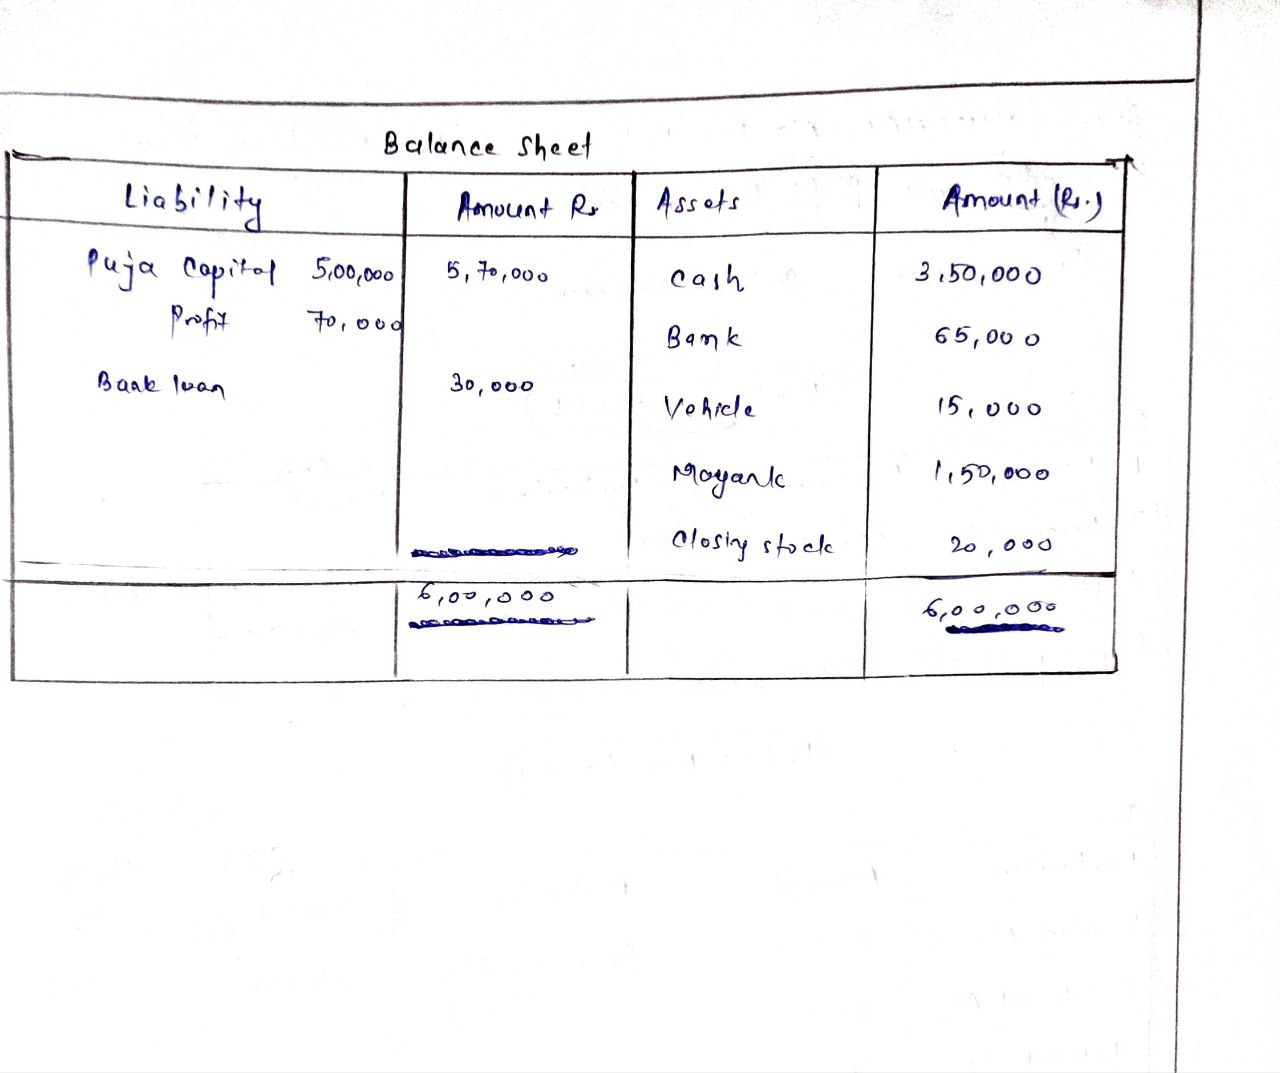 Balance Sheet
Liability Amount Rs Assets Amount (Rs.)
Puja Capital 5,00,000 5,70,000 Cash 3,50,000
Profit 70,000
Bank 65,000
Bank loan 30,000
Vehicle 15,000
Mayank 1,50,000
Closing stock 20,000
6,00,000 6,00,000